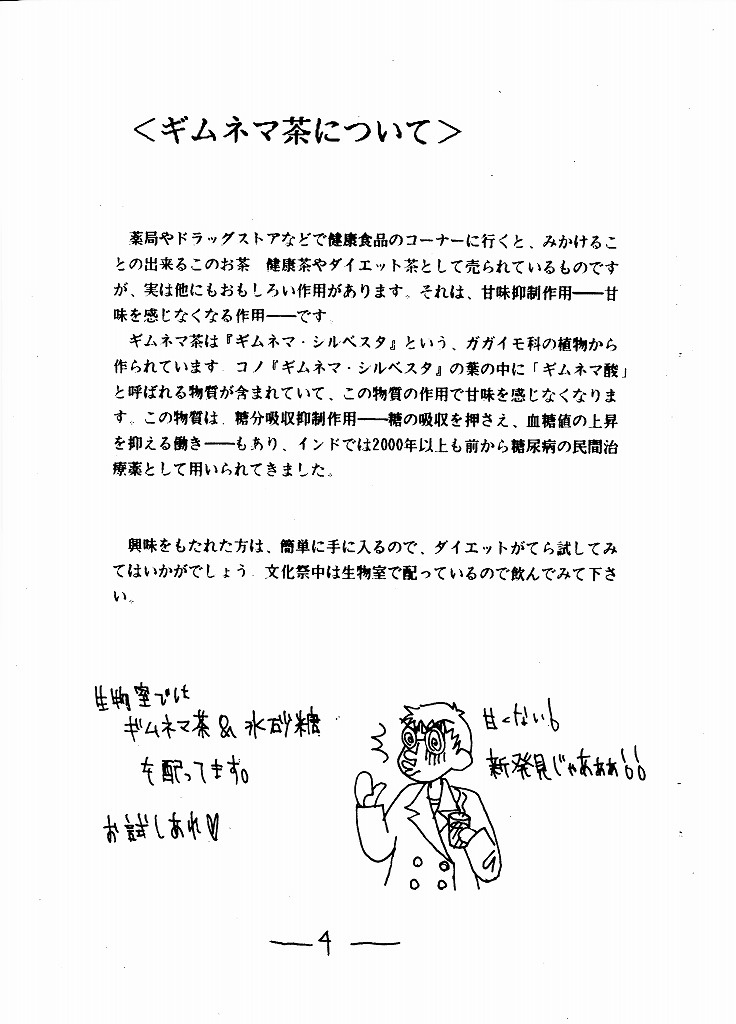 ＜ギムネマ茶について＞
薬局やドラッグストアなどで健康食品のコーナーに行くと、みかけるこ
との出来るこのお茶　健康茶やダイエット茶として売られているものです
が、実は他にもおもしろい作用があります。それは、甘味抑制作用――甘
味を感じなくなる作用――です
ギムネマ茶は『ギムネマ・シルベスタ』という、ガガイモ科の植物から
作られています．コノ『ギムネマ・シルベスタ』の葉の中に「ギムネマ酸」
と呼ばれる物質が含まれていて、この物質の作用で甘味を感じなくなりま
す。この物質は．糖分吸収抑制作用――糖の吸収を押さえ、血糖値の上昇
を抑える働き――もあり、インドでは2000年以上も前から糖尿病の民間治
療薬として用いられてきました。
興味をもたれた方は、簡単に手に入るので、ダイエットがてら試してみ
てはいかがでしょう．文化祭中は生物室で配っているので飲んでみて下さ
い。
生物室では
ギムネマ茶＆氷砂糖
を配ってます。
お試しあれ♡
甘くない！
新発見じゃあぁぁ！！
― 4 ―